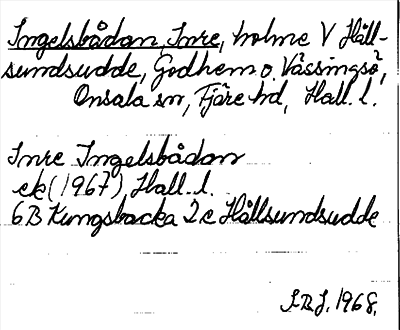 Ingelsbådan, Inre, holme V Håll-
sundsudde, Godhem o. Vässingsö,
Onsala sn, Fjäre hd, Hall. l.
Inre Ingelsbådan
ek (1967) Hall. l.
6B Kungsbacka 2c Hållsundsudde
1968.